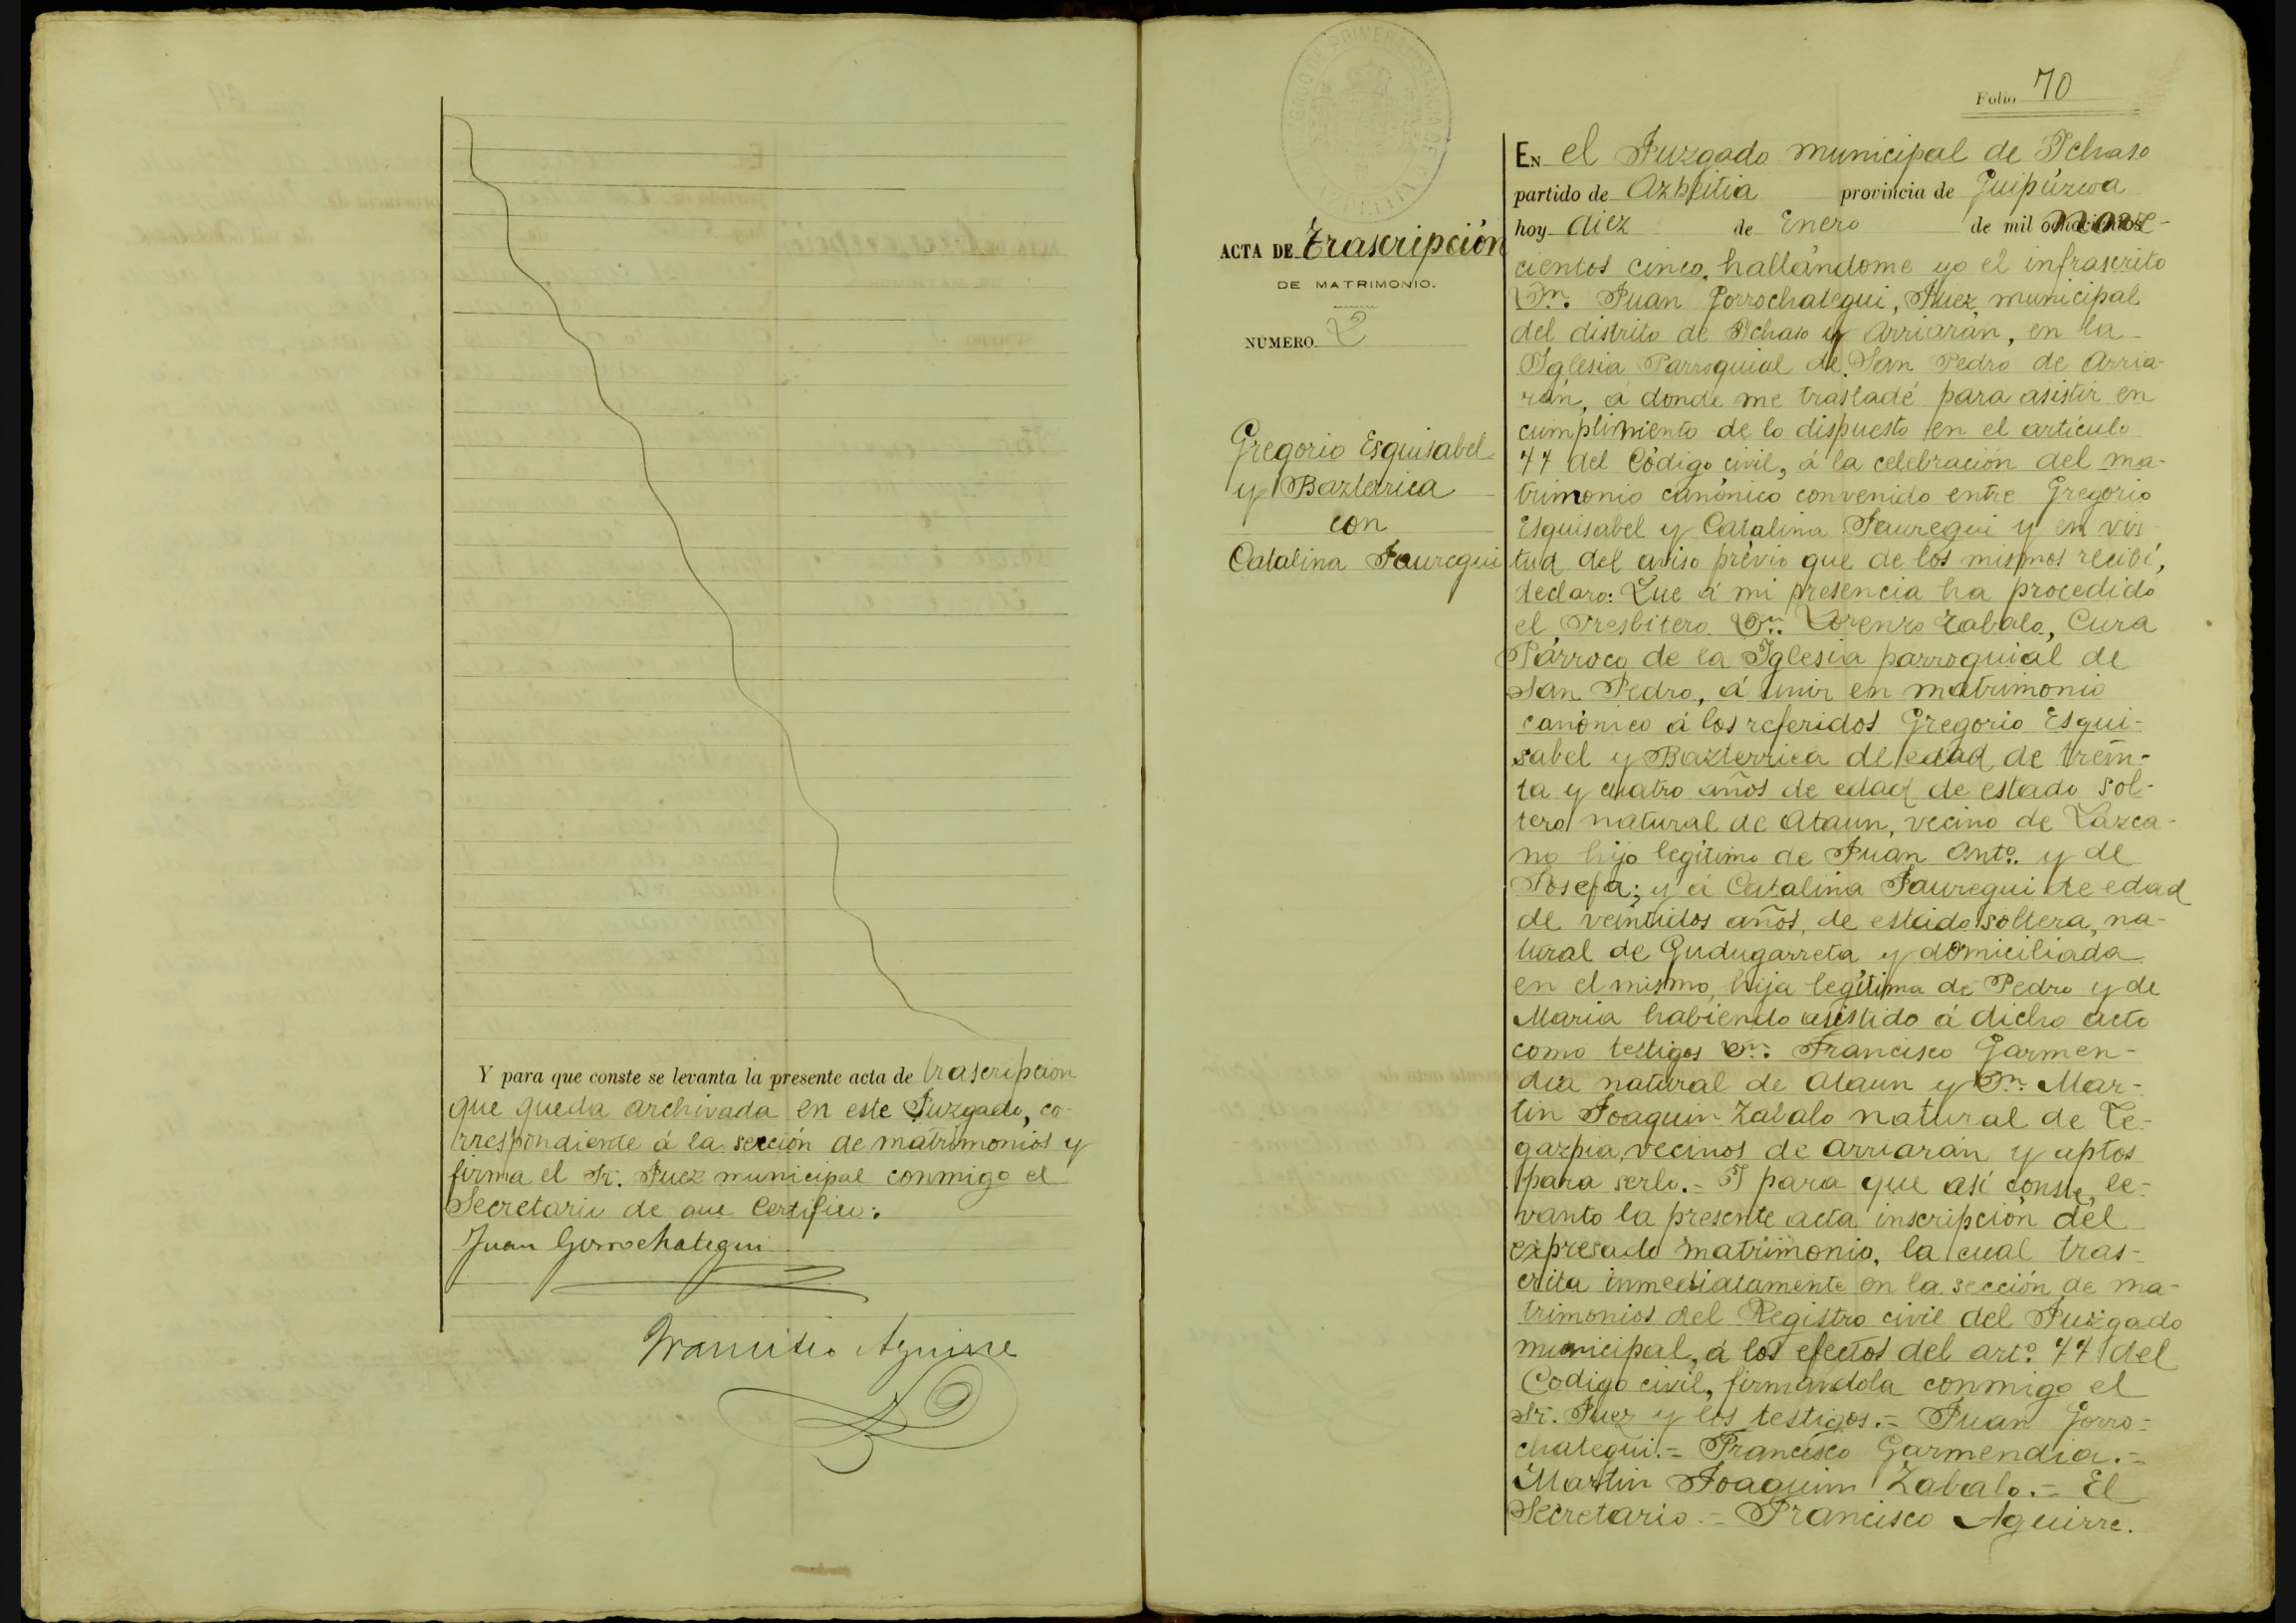 Y para que conste se levanta la presente acta de trascripción
que queda archivada en este Juzgado, co-
rrespondiente á la sección de matrimonios y
firma el Sr. Juez municipal conmigo el
Secretario de que Certifico:
Juan Gorrochategui
Francisco Aguirre
Folio 70
ACTA DE Trascripción
DE MATRIMONIO.
NÚMERO 2
Gregorio Esquisabel
y Bazterrica
con
Catalina Jauregui
En el Juzgado municipal de Ichaso
partido de Azpeitia provincia de Guipúzcoa
hoy diez de Enero de mil nove-
cientos cinco, hallándome yo el infrascrito
Dn. Juan Gorrochategui, Juez municipal
del distrito de Ichaso y Arriarán, en la
Iglesia Parroquial de San Pedro de Arria-
rán, á donde me trasladé para asistir en
cumplimiento de lo dispuesto en el artículo
77 del Código civil, á la celebración del ma-
trimonio canónico convenido entre Gregorio
Esquisabel y Catalina Jauregui y en vir-
tud del aviso prévio que de los mismos recibí,
declaro: Que á mi presencia ha procedido
el Presbitero Dn. Lorenzo Zabalo, Cura
Párroco de la Iglesia parroquial de
San Pedro, á unir en matrimonio
canónico á los referidos Gregorio Esqui-
sabel y Bazterrica de edad de trein-
ta y cuatro años de edad de estado sol-
tero natural de Ataun, vecino de Lazca-
no hijo legítimo de Juan Antº. y de
Josefa; y á Catalina Jauregui de edad
de veintidos años, de estado soltera, na-
tural de Gudugarreta y domiciliada
en el mismo, hija legítima de Pedro y de
Maria habiendo asistido á dicho acto
como testigos Dn. Francisco Garmen-
dia natural de Ataun y Dn. Mar-
tin Joaquin Zabalo natural de Le-
gazpia, vecinos de Arriarán y aptos
para serlo.- I para que así conste, le-
vanto la presente acta inscripción del
expresado matrimonio, la cual tras-
crita inmediatamente en la sección de ma-
trimonios del Registro civil del Juzgado
municipal, á los efectos del artº. 77 del
Codigo civil, firmandola conmigo el
Sr. Juez y los testigos.= Juan Gorro-
chategui.= Francisco Garmendia.=
Martin Joaquim Zabalo.= El
Secretario.= Francisco Aguirre.